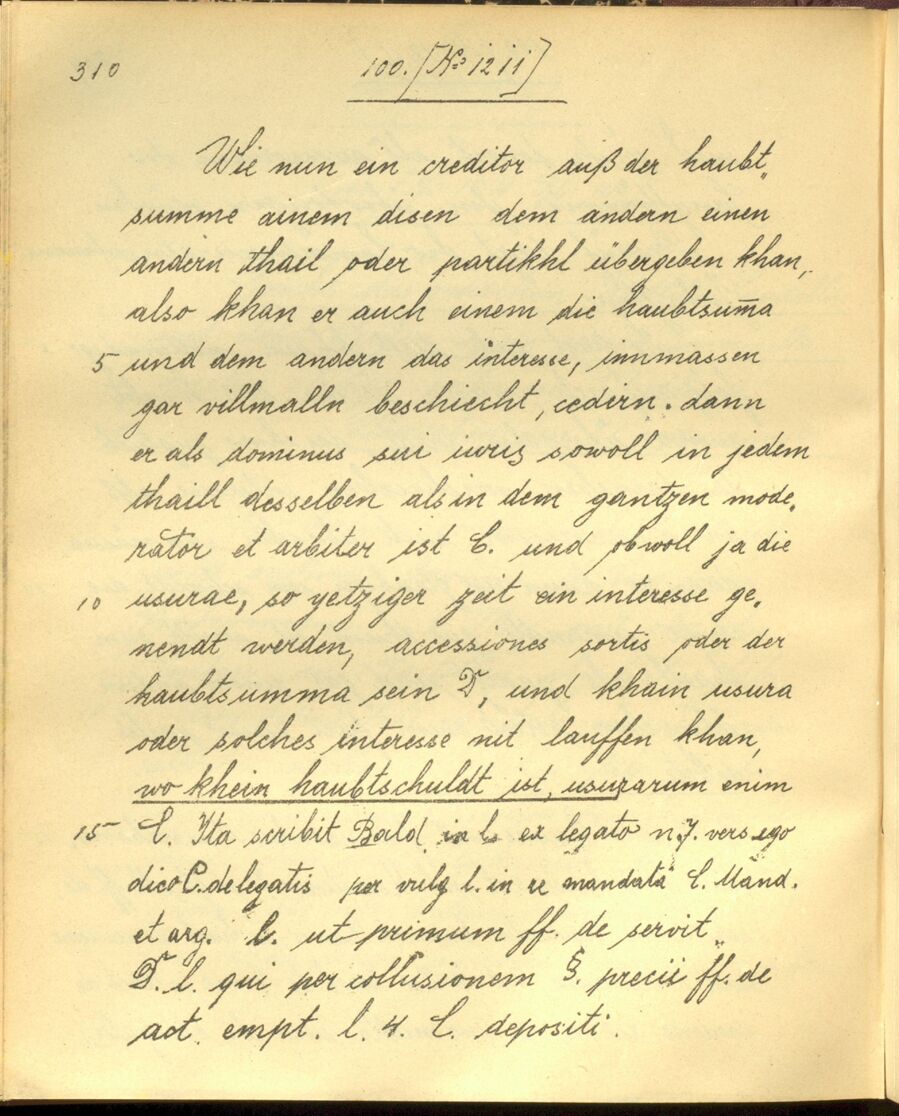 310
100. [No 1211]
Wie nun ein creditor auß der haubt„
summe ainem disen dem andern einen
andern thail oder partikhl übergeben khan,
also khan er auch einem die haubtsum̄a
5 und dem andern das interesse, innmassen
gar villmalln beschiecht, cedirn. dann
er als dominus sui iuris sowoll in jedem
thaill desselben als in dem gantzen mode„
rator et arbiter ist C. und obwoll ja die
10 usurae, so yetziger zeit ein interesse ge„
nendt werden, accessiones sortis oder der
haubtsumma sein D, und khain usura
oder solches interesse nit lauffen khan,
wo khein haubtschuldt ist, usurarum enim
15 C. Ita scribit Bald in l. ex legato n. 7. vers ego
dico C. de legatis per vulg l. in re mandata C. Mand.
et arg. l. ut primum ff. de servit„
D. l. qui per collusionem §. precii ff. de
act. empt. l. 4. C. depositi.